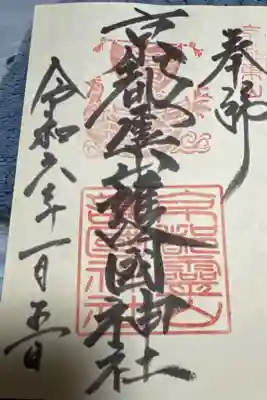 奉拝
京都霊山護國神社
令和六年一月五日
京都靈山
護國神社